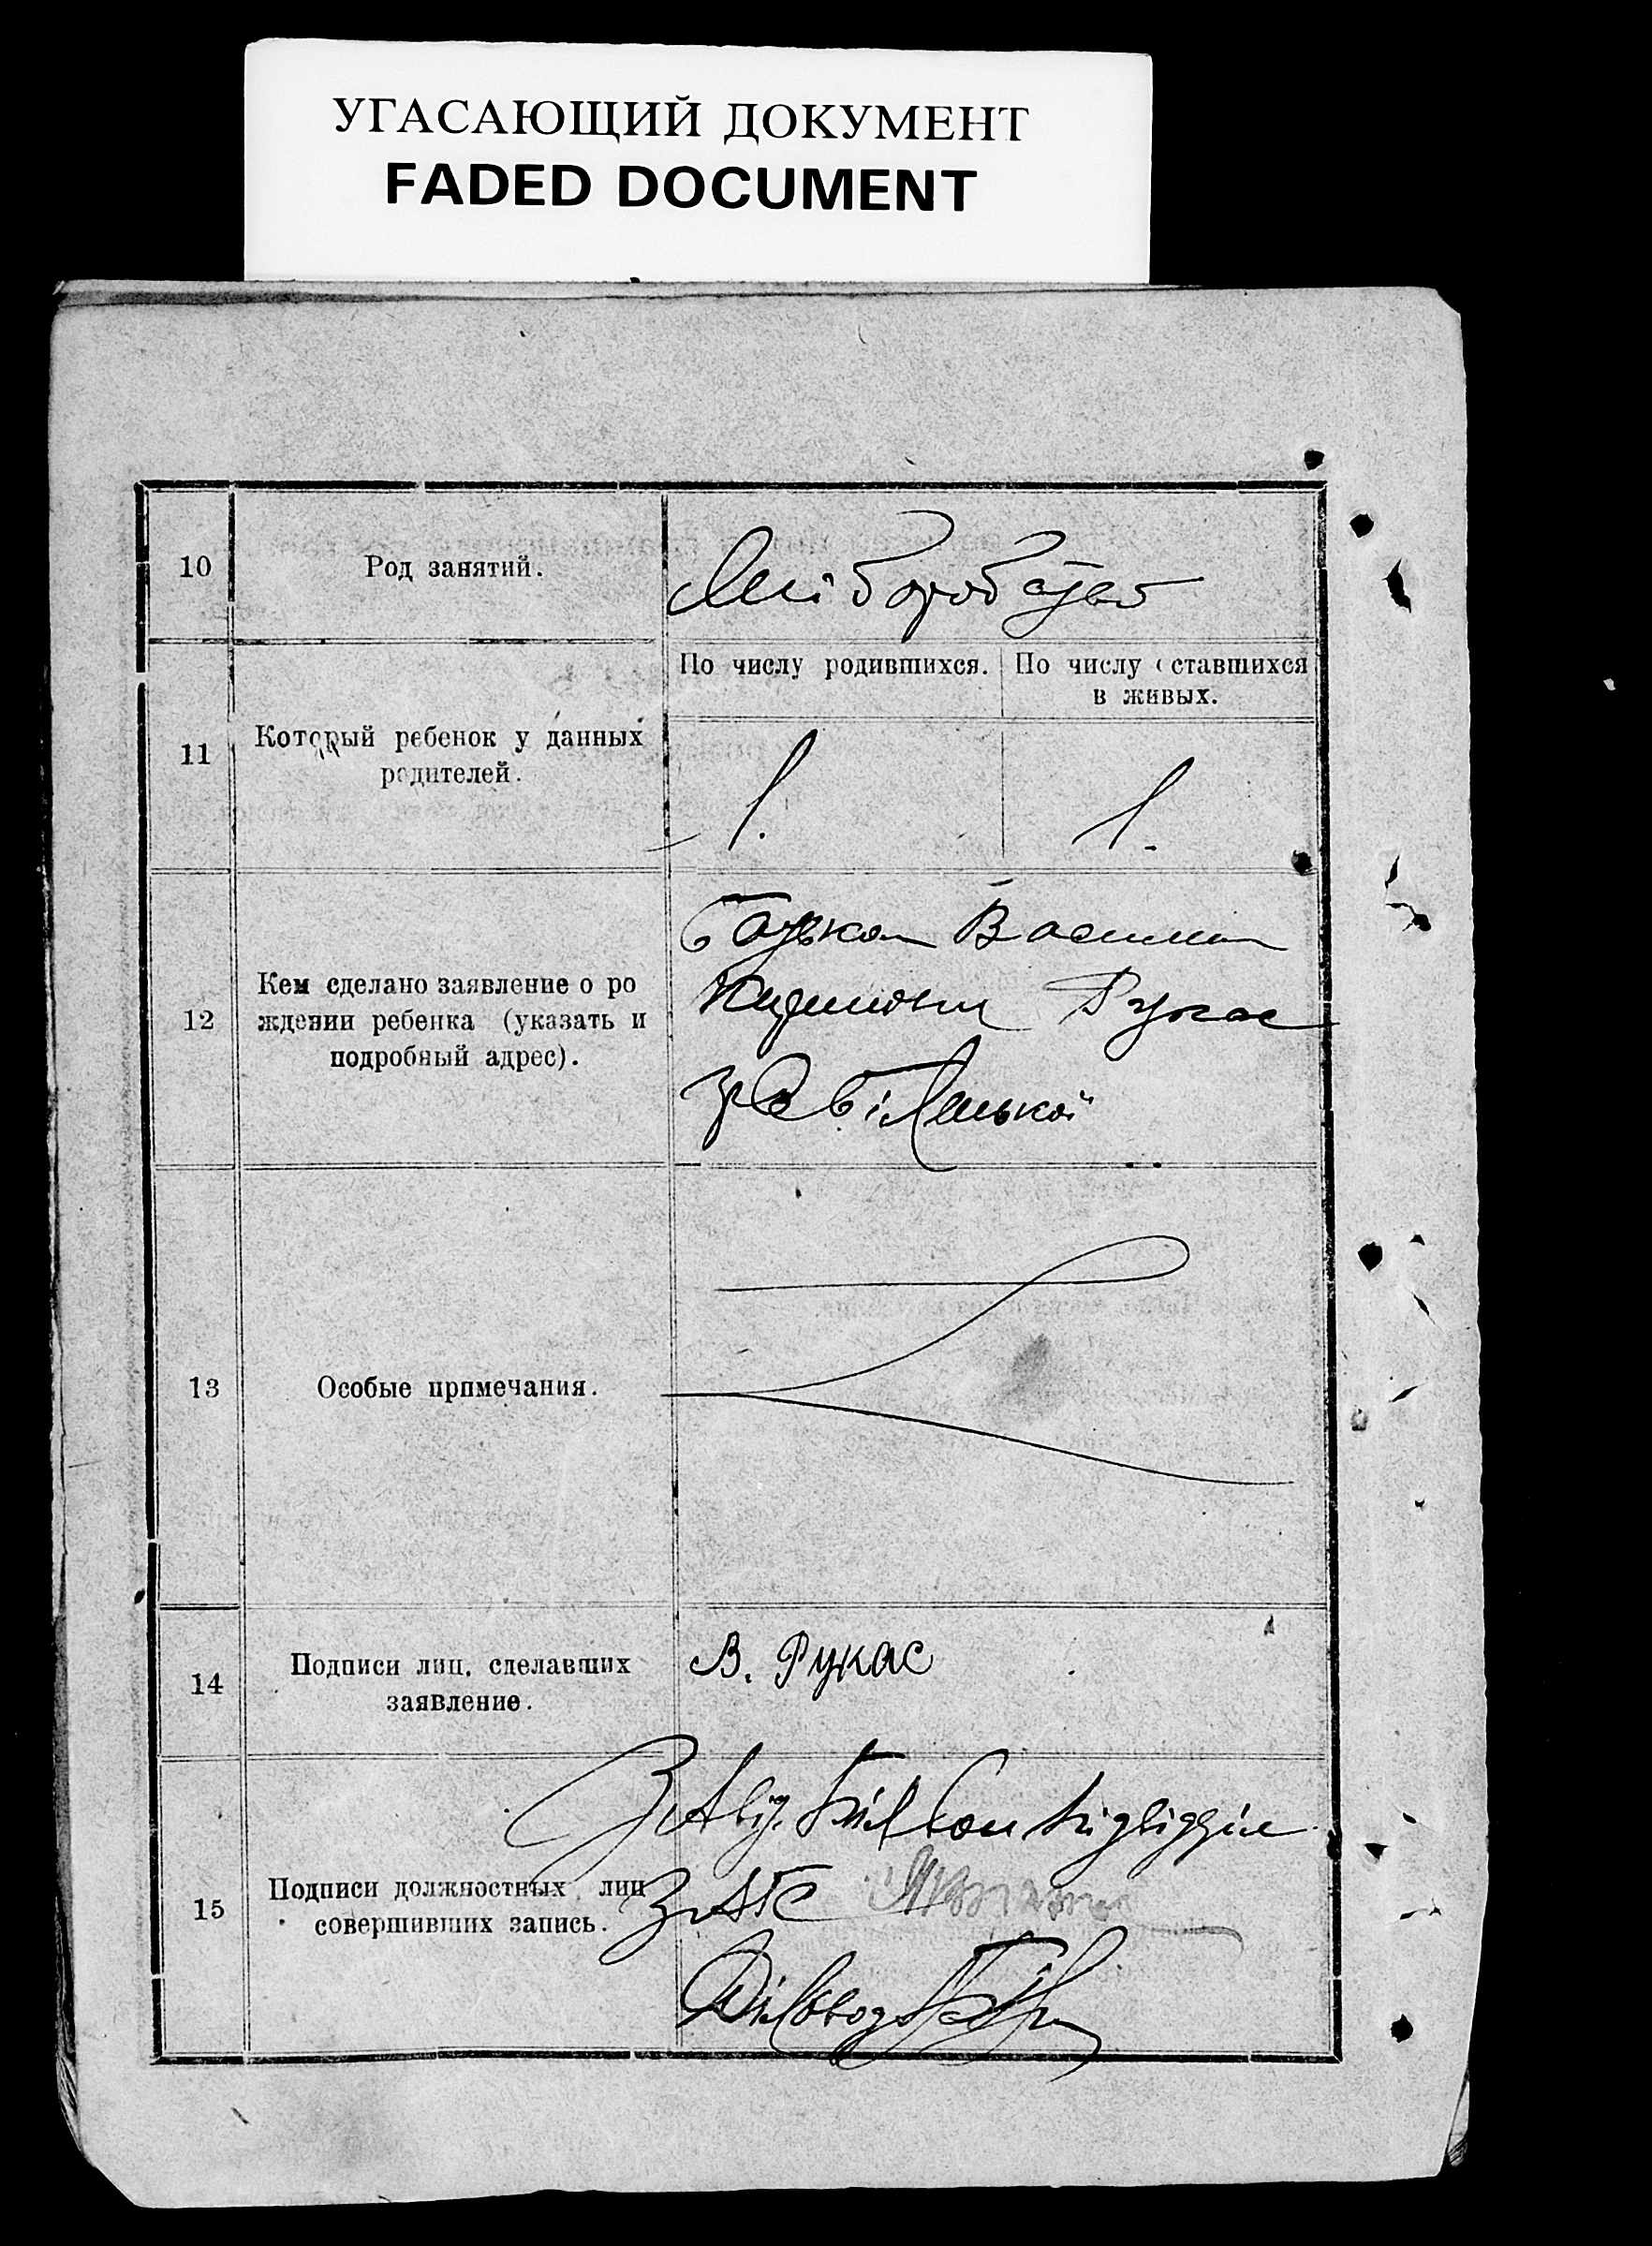 УГАСАЮЩИЙ ДОКУМЕНТ
FADED DOCUMENT
10
Род занятий.
Хліборобство
11
Который ребенок у данных
родителей.
По числу родившихся.
По числу ставшихся
в живых.
1.
1.
12
Кем сделано заявление о ро
ждении ребенка (указать и
подробный адрес).
Батьком Василем
Рукас
з с Біленької
13
Особые примечания.
14
Подписи лиц, сделавших
заявление.
В. Рукас
15
Подписи должностных лиц
совершивших запись.
Завід.
ЗАГС
Діловод